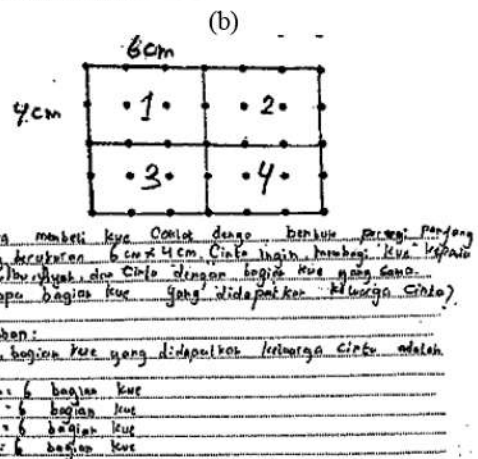 (b)
6cm
4cm
1 2
3 4
membeli kue Coklat dengan bentuk persegi panjang
berukuran 6 cm x 4 cm Cinta Ingin membagi kue kepada
Ibu, Ayah, dan Cinta dengan bagian kue yang sama.
bagian kue yang didapatkan keluarga Cinta?
bagian kue yang didapatkan keluarga Cinta adalah
= 6 bagian kue
= 6 bagian kue
= 6 bagian kue
= 6 bagian kue